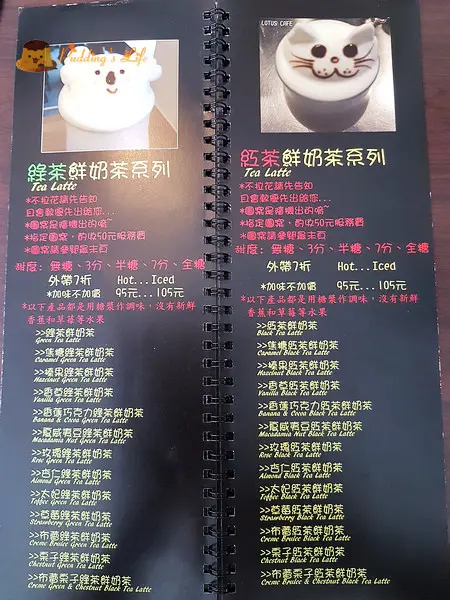 Pudding's Life
綠茶鮮奶茶系列
Tea Latte
*不拉花請先告知
且會較優先出給您...
*圖案是隨機出的唷~
*指定圖案、酌收50元服務費
*圖案請參閱最末頁
甜度: 無糖、3分、半糖、7分、全糖
外帶7折 Hot...Iced
*加味不加價 95元...105元
*以下產品都是用糖漿作調味,沒有新鮮
香蕉和草莓等水果
>>綠茶鮮奶茶
Green Tea Latte
>>焦糖綠茶鮮奶茶
Caramel Green Tea Latte
>>榛果綠茶鮮奶茶
Hazelnut Green Tea Latte
>>香草綠茶鮮奶茶
Vanilla Green Tea Latte
>>香蕉巧克力綠茶鮮奶茶
Banana & Cocoa Green Tea Latte
>>夏威夷豆綠茶鮮奶茶
Macadamia Nut Green Tea Latte
>>玫瑰綠茶鮮奶茶
Rose Green Tea Latte
>>杏仁綠茶鮮奶茶
Almond Green Tea Latte
>>太妃綠茶鮮奶茶
Toffee Green Tea Latte
>>草莓綠茶鮮奶茶
Strawberry Green Tea Latte
>>布蕾綠茶鮮奶茶
Creme Brulee Green Tea Latte
>>栗子綠茶鮮奶茶
Chestnut Green Tea Latte
>>布蕾栗子綠茶鮮奶茶
Creme Green & Chestnut Green Tea Latte
LOTUS CAFE
紅茶鮮奶茶系列
Tea Latte
*不拉花請先告知
且會較優先出給您...
*圖案是隨機出的唷~
*指定圖案、酌收50元服務費
*圖案請參閱最末頁
甜度: 無糖、3分、半糖、7分、全糖
外帶7折 Hot...Iced
*加味不加價 95元...105元
*以下產品都是用糖漿作調味,沒有新鮮
香蕉和草莓等水果
>>紅茶鮮奶茶
Black Tea Latte
>>焦糖紅茶鮮奶茶
Caramel Black Tea Latte
>>榛果紅茶鮮奶茶
Hazelnut Black Tea Latte
>>香草紅茶鮮奶茶
Vanilla Black Tea Latte
>>香蕉巧克力紅茶鮮奶茶
Banana & Cocoa Black Tea Latte
>>夏威夷豆紅茶鮮奶茶
Macadamia Nut Black Tea Latte
>>玫瑰紅茶鮮奶茶
Rose Black Tea Latte
>>杏仁紅茶鮮奶茶
Almond Black Tea Latte
>>太妃紅茶鮮奶茶
Toffee Black Tea Latte
>>草莓紅茶鮮奶茶
Strawberry Black Tea Latte
>>布蕾紅茶鮮奶茶
Creme Brulee Black Tea Latte
>>栗子紅茶鮮奶茶
Chestnut Black Tea Latte
>>布蕾栗子紅茶鮮奶茶
Creme Brulee & Chestnut Black Tea Latte